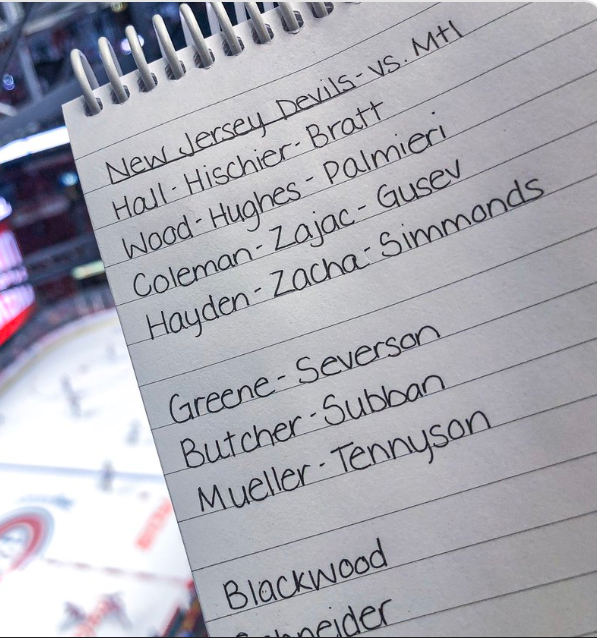 New Jersey Devils - vs. Mtl
Hall - Hischier - Bratt
Wood - Hughes - Palmieri
Coleman - Zajac - Gusev
Hayden - Zacha - Simmonds
Greene - Severson
Butcher - Subban
Mueller - Tennyson
Blackwood
Schneider